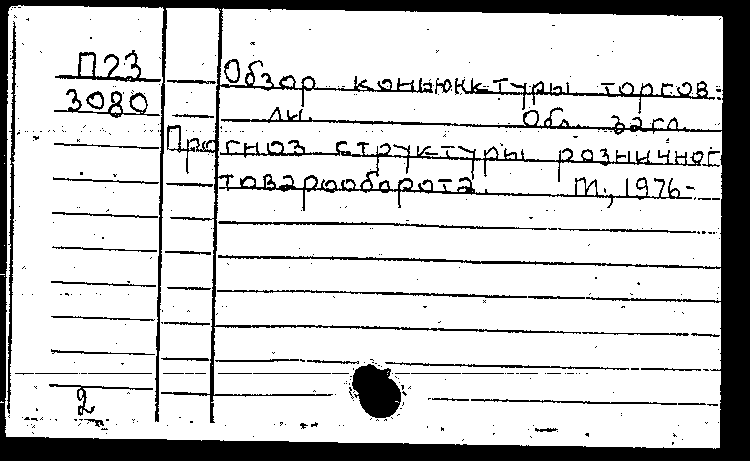 П23
3080
Обзор конъюнктуры торгов-
ли. Обл. загл.
Прогноз структуры розничного
товарооборота. М., 1976-
2